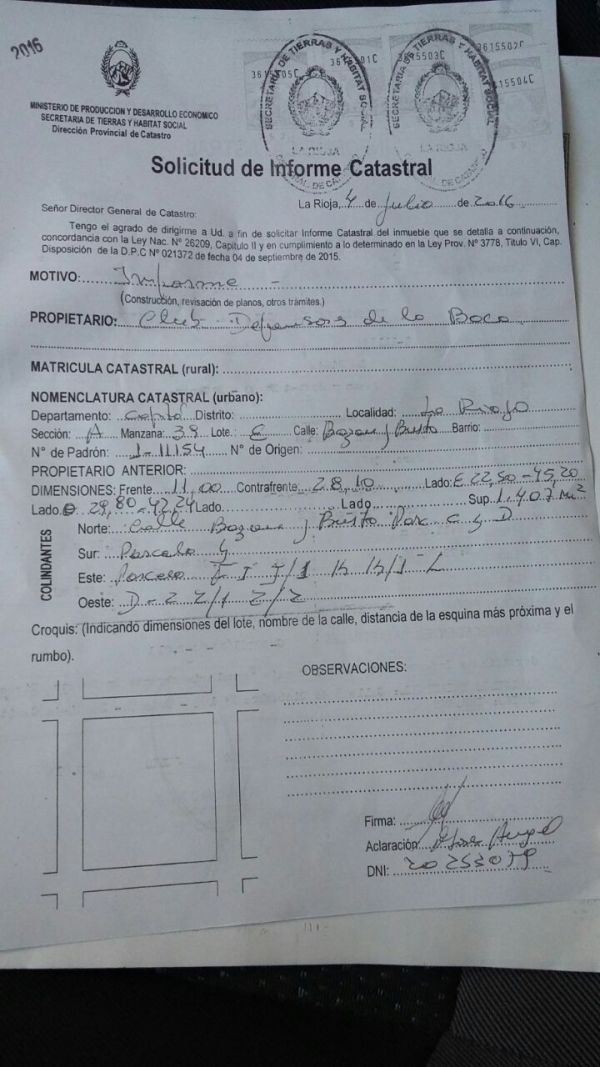 2016
3615505C
01C
5503C
3615502C
15504C
SECRETARIA DE TIERRAS Y HABITAT SOCIAL
LA RIOJA
SECRETARIA DE TIERRAS Y HABITAT SOCIAL
LA RIOJA
MINISTERIO DE PRODUCCION Y DESARROLLO ECONOMICO
SECRETARIA DE TIERRAS Y HABITAT SOCIAL
Dirección Provincial de Catastro
Solicitud de Informe Catastral
La Rioja, 4 de Julio de 2016
Señor Director General de Catastro:
Tengo el agrado de dirigirme a Ud. a fin de solicitar Informe Catastral del inmueble que se detalla a continuación,
concordancia con la Ley Nac. Nº 26209, Capitulo II y en cumplimiento a lo determinado en la Ley Prov. Nº 3778, Titulo VI, Cap.
Disposición de la D.P.C Nº 021372 de fecha 04 de septiembre de 2015.
MOTIVO: Informe -
(Construcción, revisación de planos, otros trámites.)
PROPIETARIO: Club Defensores de la Boca
MATRICULA CATASTRAL (rural):
NOMENCLATURA CATASTRAL (urbano):
Departamento: Capital Distrito: Localidad: La Rioja
Sección: A Manzana: 39 Lote.: E Calle: Bazan y Busto Barrio:
N° de Padrón: 1-11154 N° de Origen:
PROPIETARIO ANTERIOR:
DIMENSIONES: Frente 11,00 Contrafrente 28,10 Lado: E 22,50-45,20
Lado O 29,80 - 42,24 Lado Lado Sup 1.407 m²
COLINDANTES
Norte: Calle Bazan y Busto Parc C y D
Sur: Parcela G
Este: Parcela I J/1 K K/1 - L
Oeste: D - Z Z/1 Z/2
Croquis: (Indicando dimensiones del lote, nombre de la calle, distancia de la esquina más próxima y el
rumbo).
OBSERVACIONES:
Firma:
Aclaración Angel
DNI: 20253079